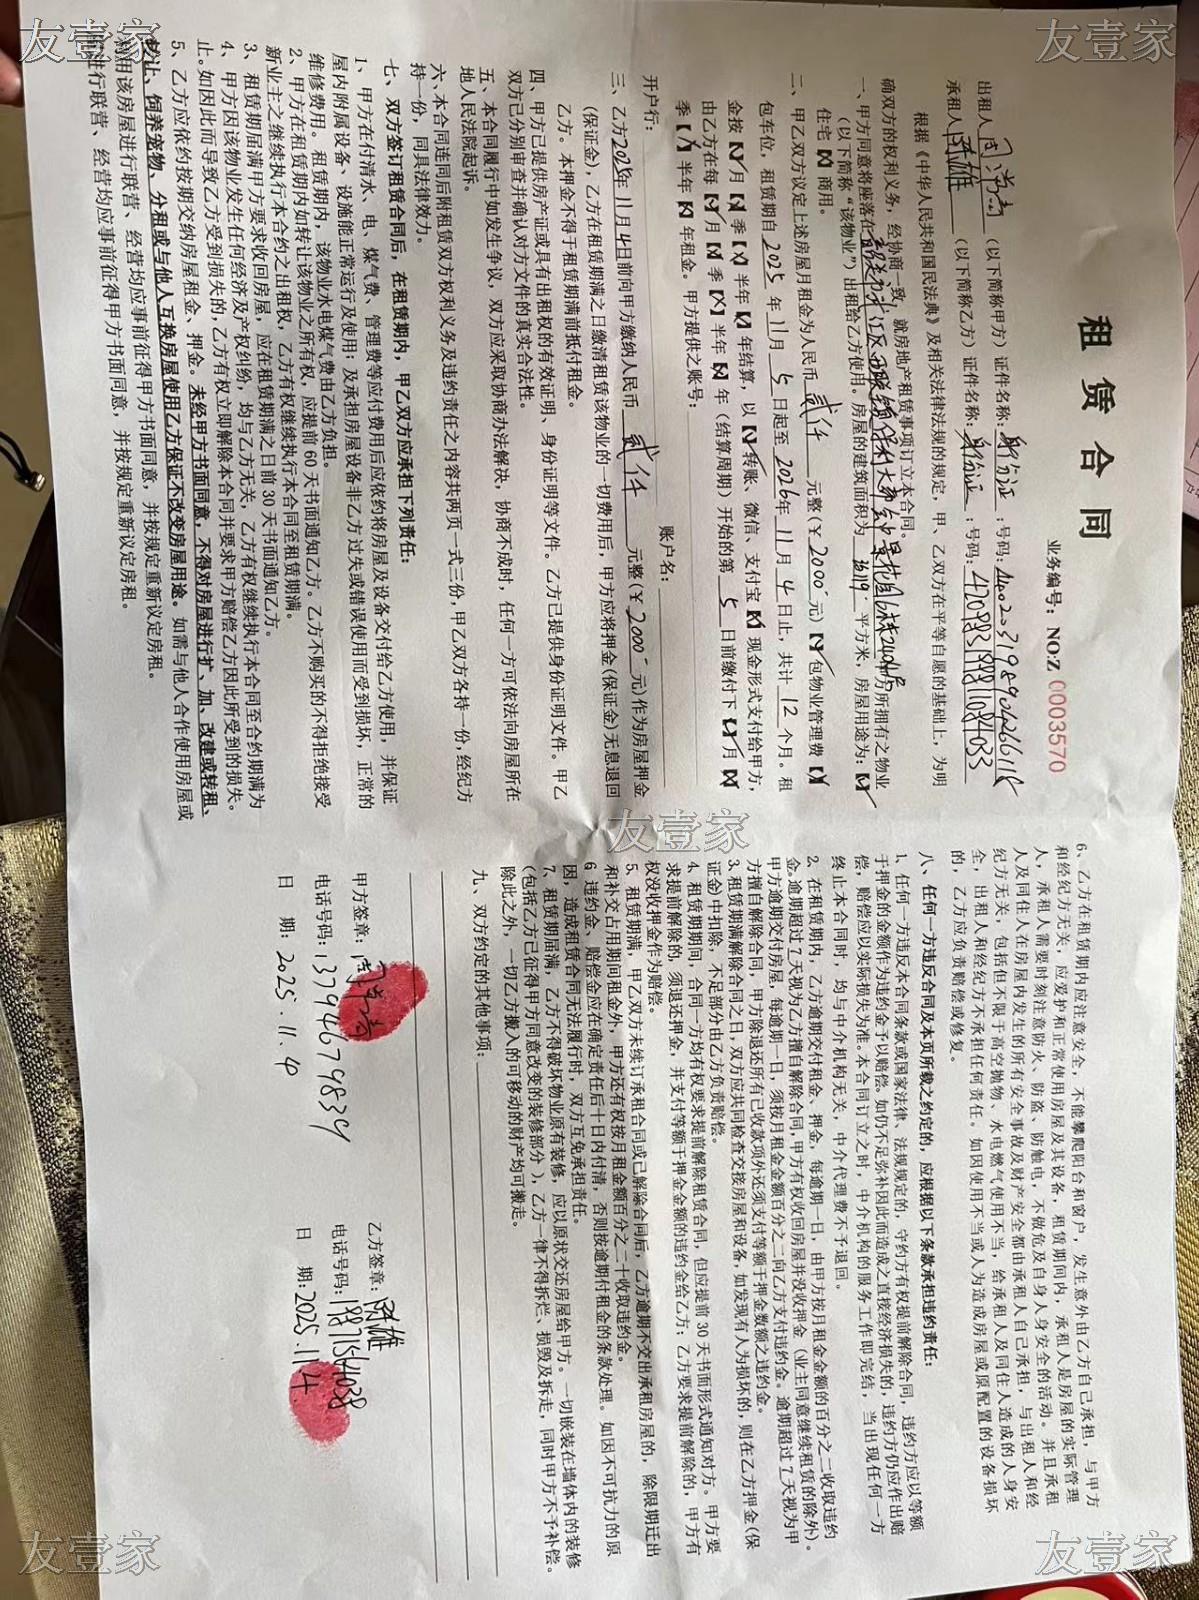 友壹家
友壹家
租赁合同
业务编号：NO:Z 0003570
出租人（以下简称甲方）证件名称：身份证：号码：
承租人陈雄（以下简称乙方）证件名称：身份证：号码：
根据《中华人民共和国民法典》及相关法律法规的规定，甲、乙双方在平等自愿的基础上，为明
确双方的权利义务，经协商一致，就房地产租赁事项订立本合同。
一、甲方同意将座落在 甲方所拥有之物业
（以下简称“该物业”）出租给乙方使用。房屋的建筑面积为 平方米，房屋用途为：【√】
住宅【×】商用。
二、甲乙双方议定上述房屋月租金为人民币 贰仟 元整（￥2000 元）【√】包物业管理费【×】
包车位，租赁期自 2025 年 11 月 5 日起至 2026 年 11 月 4 日止，共计 12 个月。租
金按【√】月【×】季【×】半年【×】年结算，以【√】转账、微信、支付宝【×】现金形式支付给甲方，
由乙方在每【√】月【×】季【×】半年【×】年（结算周期）开始的第 5 日前缴付下【√】月【×】
季【×】半年【×】年租金。甲方提供之账号：
开户行： 账户名：
三、乙方2025年11月4日前向甲方缴纳人民币 贰仟 元整（￥2000 元）作为房屋押金
（保证金），乙方在租赁期满之日缴清租赁该物业的一切费用后，甲方应将押金（保证金）无息退回
乙方。本押金不得于租赁期满前抵付租金。
四、甲方已提供房产证或具有出租权的有效证明、身份证明等文件。乙方已提供身份证明文件。甲乙
双方已分别审查并确认对方文件的真实合法性。
五、本合同履行中如发生争议，双方应采取协商办法解决，协商不成时，任何一方可依法向房屋所在
地人民法院起诉。
六、本合同连同后附租赁双方权利义务及违约责任之内容共两页一式三份，甲乙双方各持一份，经纪方
持一份，同具法律效力。
七、双方签订租赁合同后，在租赁期内，甲乙双方应承担下列责任：
1、甲方在付清水、电、煤气费、管理费等应付费用后应依约将房屋及设备交付给乙方使用，并保证
屋内附属设备、设施能正常运行及使用；及承担房屋设备非乙方过失或错误使用而受到损坏，正常的
维修费用。租赁期内，该物业水电煤气费由乙方负担。
2、甲方在租赁期内如转让该物业之所有权，应提前 60 天书面通知乙方。乙方不购买的不得拒绝接受
新业主之继续执行本合约之出租权，乙方有权继续执行本合同至租赁期满。
3、租赁期届满甲方要求收回房屋，应在租赁期满之日前 30 天书面通知乙方。
4、甲方因该物业发生任何经济及产权纠纷，均与乙方无关，乙方有权继续执行本合同至合约期满为
止。如因此而导致乙方受到损失的，乙方有权立即解除本合同并要求甲方赔偿乙方因此所受到的损失。
5、乙方应依约按期交纳房屋租金、押金。未经甲方书面同意，不得对房屋进行扩、加、改建或转租、
转让、饲养宠物、分租或与他人互换房屋使用乙方保证不改变房屋用途。如需与他人合作使用房屋或
利用该房屋进行联营、经营均应事前征得甲方书面同意，并按规定重新议定房租。
进行联营、经营均应事前征得甲方书面同意，并按规定重新议定房租。
友壹家
6、乙方在租赁期内应注意安全，不能攀爬阳台和窗户，发生意外由乙方自己承担，与甲方
和经纪方无关，应爱护和正常使用房屋及其设备，租赁期间内，承租人是房屋的实际管理
人，承租人需要时刻注意防火、防盗、防触电，不做危及自身人身安全的活动。并且承租
人及同住人在房屋内发生的所有安全事故及财产安全都由承租人自己承担，与出租人和经
纪方无关，包括但不限于高空抛物、水电燃气使用不当，给承租人及同住人造成的人身安
全，出租人和经纪方不承担任何责任。如因使用不当或人为造成房屋或原配置的设备损坏
的，乙方应负责赔偿或修复。
八、任何一方违反合同及本页所载之约定的，应根据以下条款承担违约责任：
1、任何一方违反本合同条款或国家法律、法规规定的，守约方有权提前解除合同，违约方应以等额
于押金的金额作为违约金予以赔偿。如仍不足弥补因此而造成之直接经济损失的，违约方仍应作出赔
偿，赔偿应以实际损失为准。本合同订立之时，中介机构的服务工作即完结，当出现任何一方
终止本合同时，均与中介机构无关，中介代理费不予退回。
2、在租赁期内，乙方逾期交付租金、押金，每逾期一日，由甲方按月租金金额的百分之二收取违约
金。逾期超过7天视为乙方擅自解除合同，甲方有权收回房屋并没收押金（业主同意继续租赁的除外）。
甲方逾期交付房屋，每逾期一日，须按月租金金额百分之二向乙方支付违约金。逾期超过7天视为甲
方擅自解除合同，甲方除退还所有已收款项外还须支付等额于押金数额之违约金。
3、租赁期满解除合同之日，双方应共同检查交接房屋和设备，如发现有人为损坏的，则在乙方押金（保
证金）中扣除，不足部分由乙方负责赔偿。
4、租赁期期间，合同一方均有权要求提前解除租赁合同，但应提前30天书面形式通知对方。甲方要
求提前解除的，须退还押金，并支付等额于押金金额的违约金给乙方；乙方要求提前解除的，甲方有
权没收押金作为赔偿。
5、租赁期满，甲乙双方未续订承租合同或已解除合同后，乙方逾期不交出承租房屋的，除限期迁出
和补交占用期间租金外，甲方还有权按月租金额百分之二十收取违约金。
6 违约金、赔偿金应在确定责任后十日内付清，否则按逾期付租金的条款处理。如因不可抗力的原
因，造成租赁合同无法履行时，双方互免承担责任。
7、租赁期届满，乙方不得破坏物业原有装修，应以原状交还房屋给甲方。一切嵌装在墙体内的装修
（包括乙方已征得甲方同意改变的装修部分），乙方一律不得拆烂、损毁及拆走，同时甲方不予补偿。
除此之外，一切乙方搬入的可移动的财产均可搬走。
九、双方约定的其他事项：
甲方签章：
电话号码：13794679839
日 期：2025.11.4
乙方签章：陈雄
电话号码：18971564038
日 期：2025.11.4
友壹家
友壹家